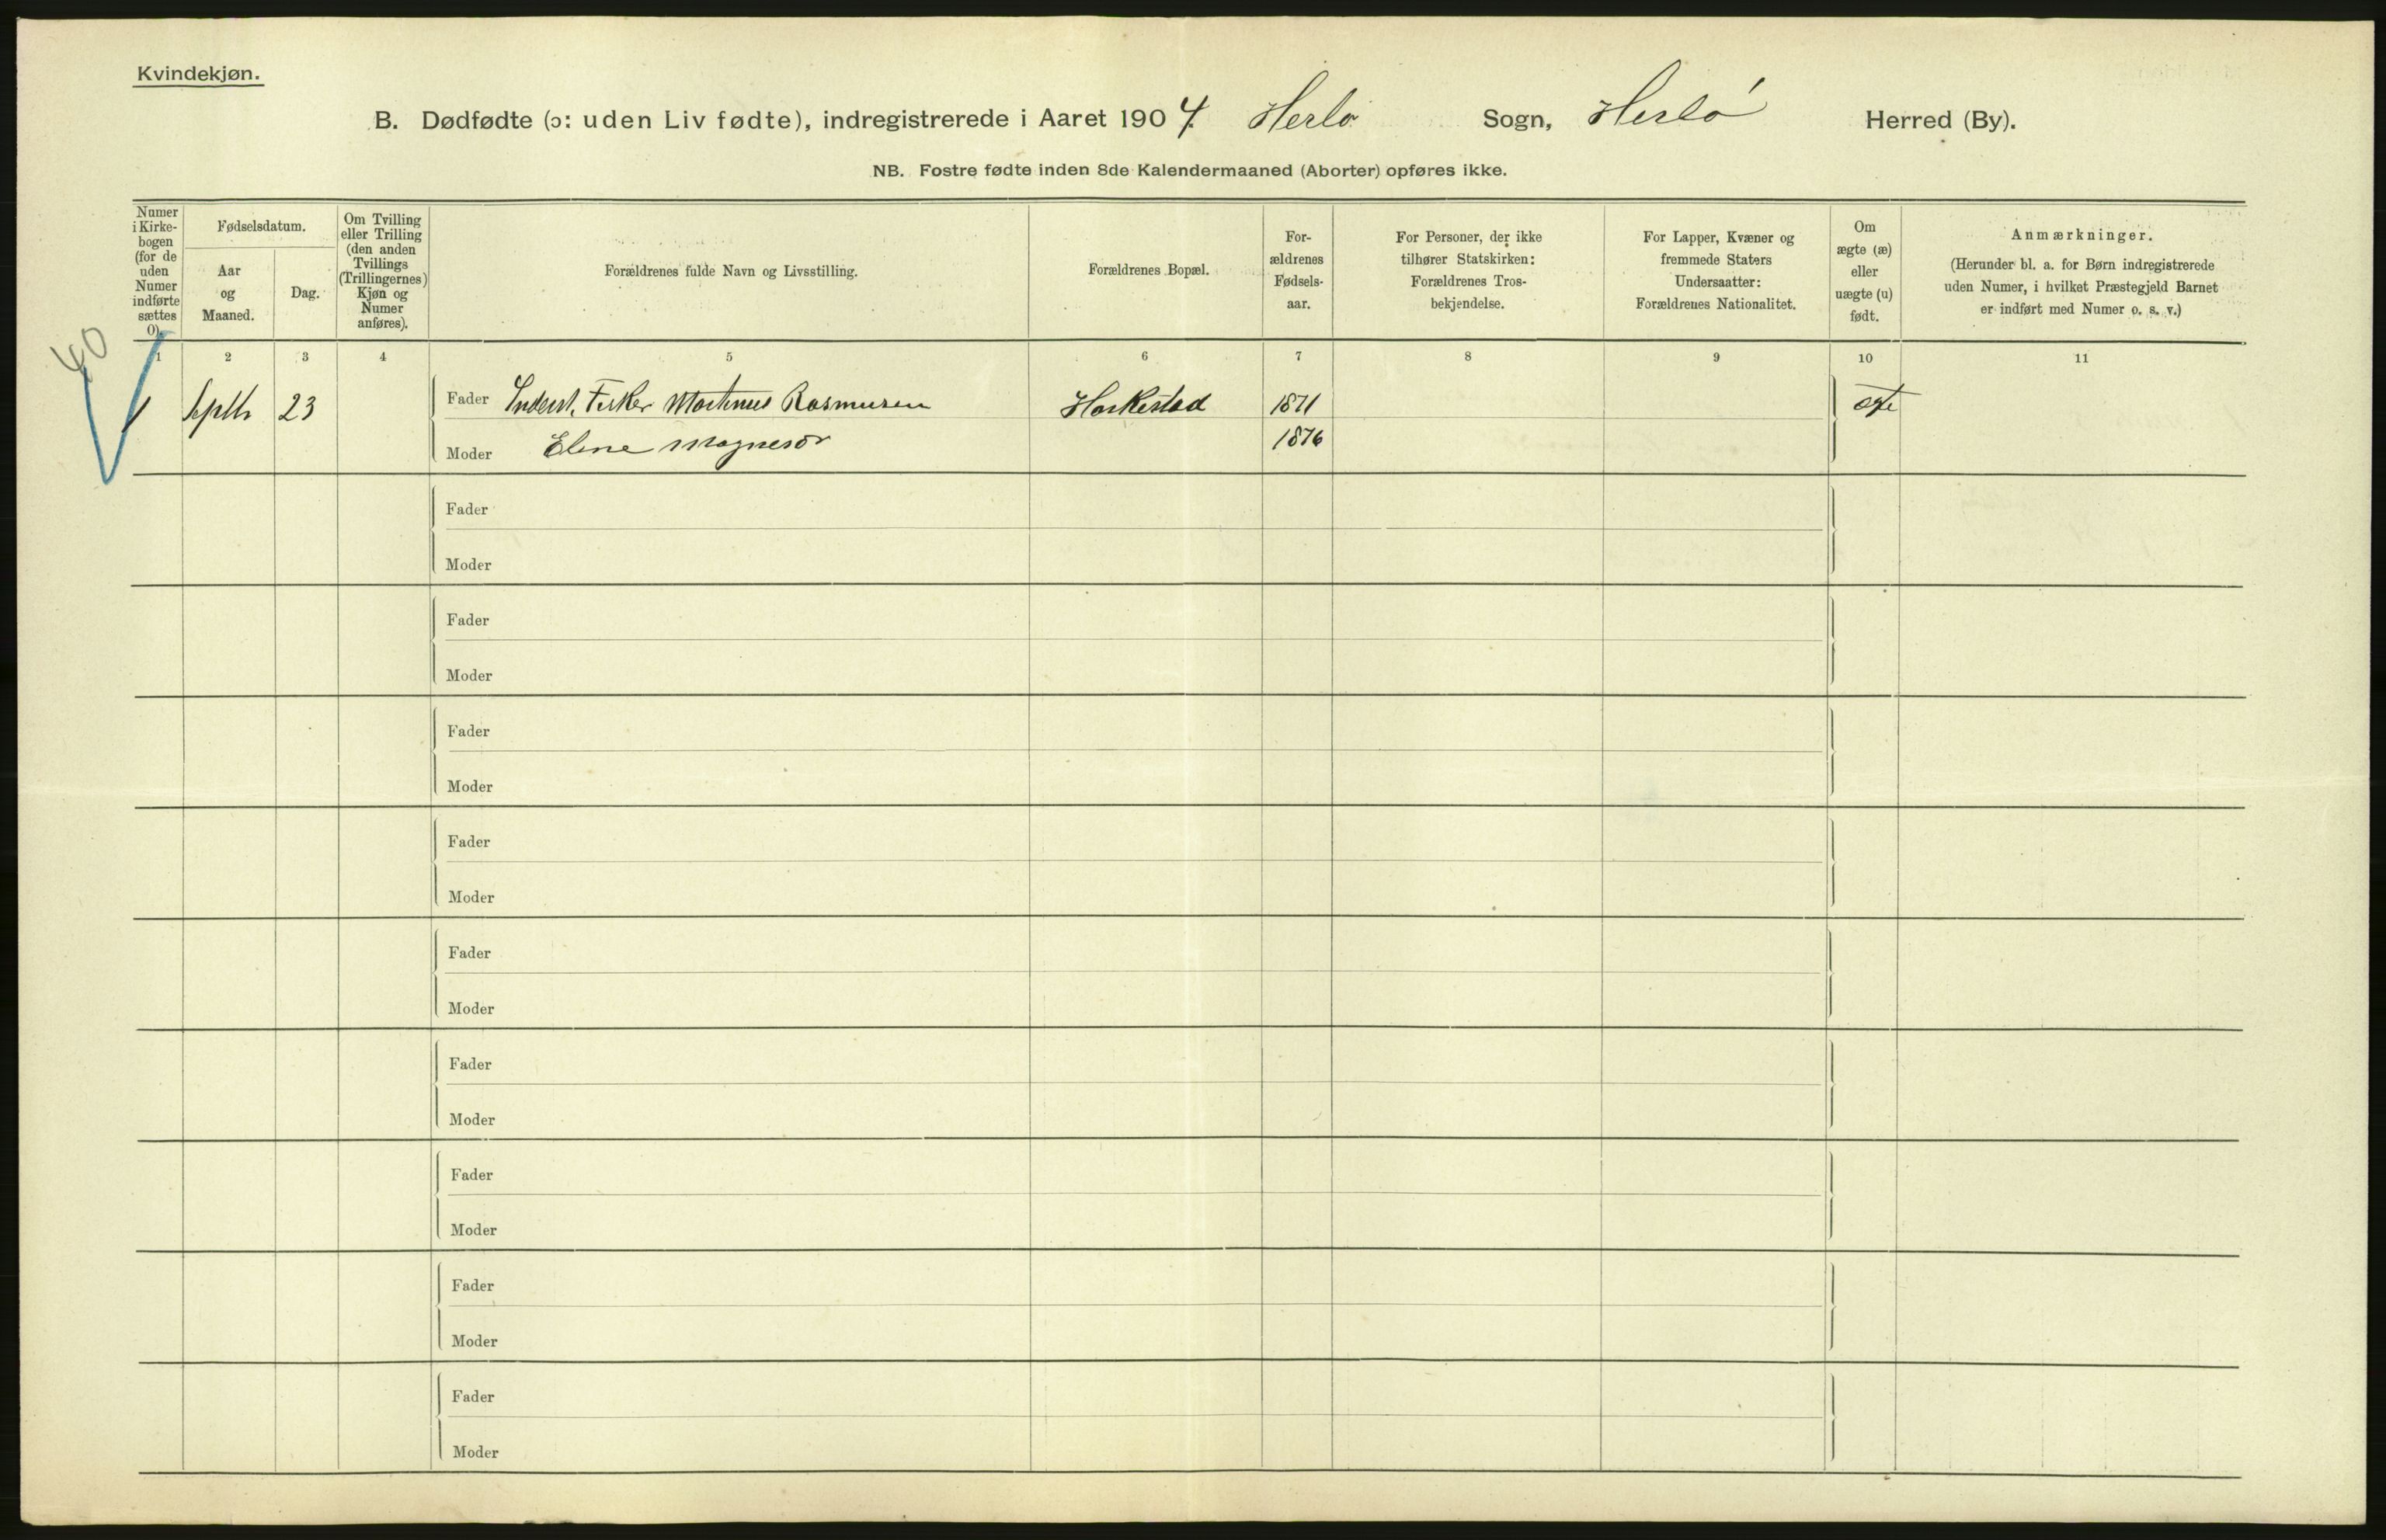 Kvindekjøn.
B. Dødfødte (ɔ: uden Liv fødte), indregistrerede i Aaret 1904. Herlø Sogn, Herlø Herred (By).
NB. Fostre fødte inden 8de Kalendermaaned (Aborter) opføres ikke.
Numer i Kirke-bogen (for de uden Numer indførte sættes 0).
Fødselsdatum.
Aar og Maaned.
Dag.
Om Tvilling eller Trilling (den anden Tvillings (Trillingernes) Kjøn og Numer anføres).
Forældrenes fulde Navn og Livsstilling.
Forældrenes Bopæl.
For-ældrenes Fødsels-aar.
For Personer, der ikke tilhører Statskirken: Forældrenes Tros-bekjendelse.
For Lapper, Kvæner og fremmede Staters Undersaatter: Forældrenes Nationalitet.
Om ægte (æ) eller uægte (u) født.
Anmærkninger.
(Herunder bl. a. for Børn indregistrerede uden Numer, i hvilket Præstegjeld Barnet er indført med Numer o. s. v.)
1 2 3 4 5 6 7 8 9 10 11
40
1 Septb 23 Fader Inderst, Fisker Martinus Rasmusen 1871 ægte
Moder Eline Magnesdr 1876
Fader
Moder
Fader
Moder
Fader
Moder
Fader
Moder
Fader
Moder
Fader
Moder
Fader
Moder
Fader
Moder
Fader
Moder